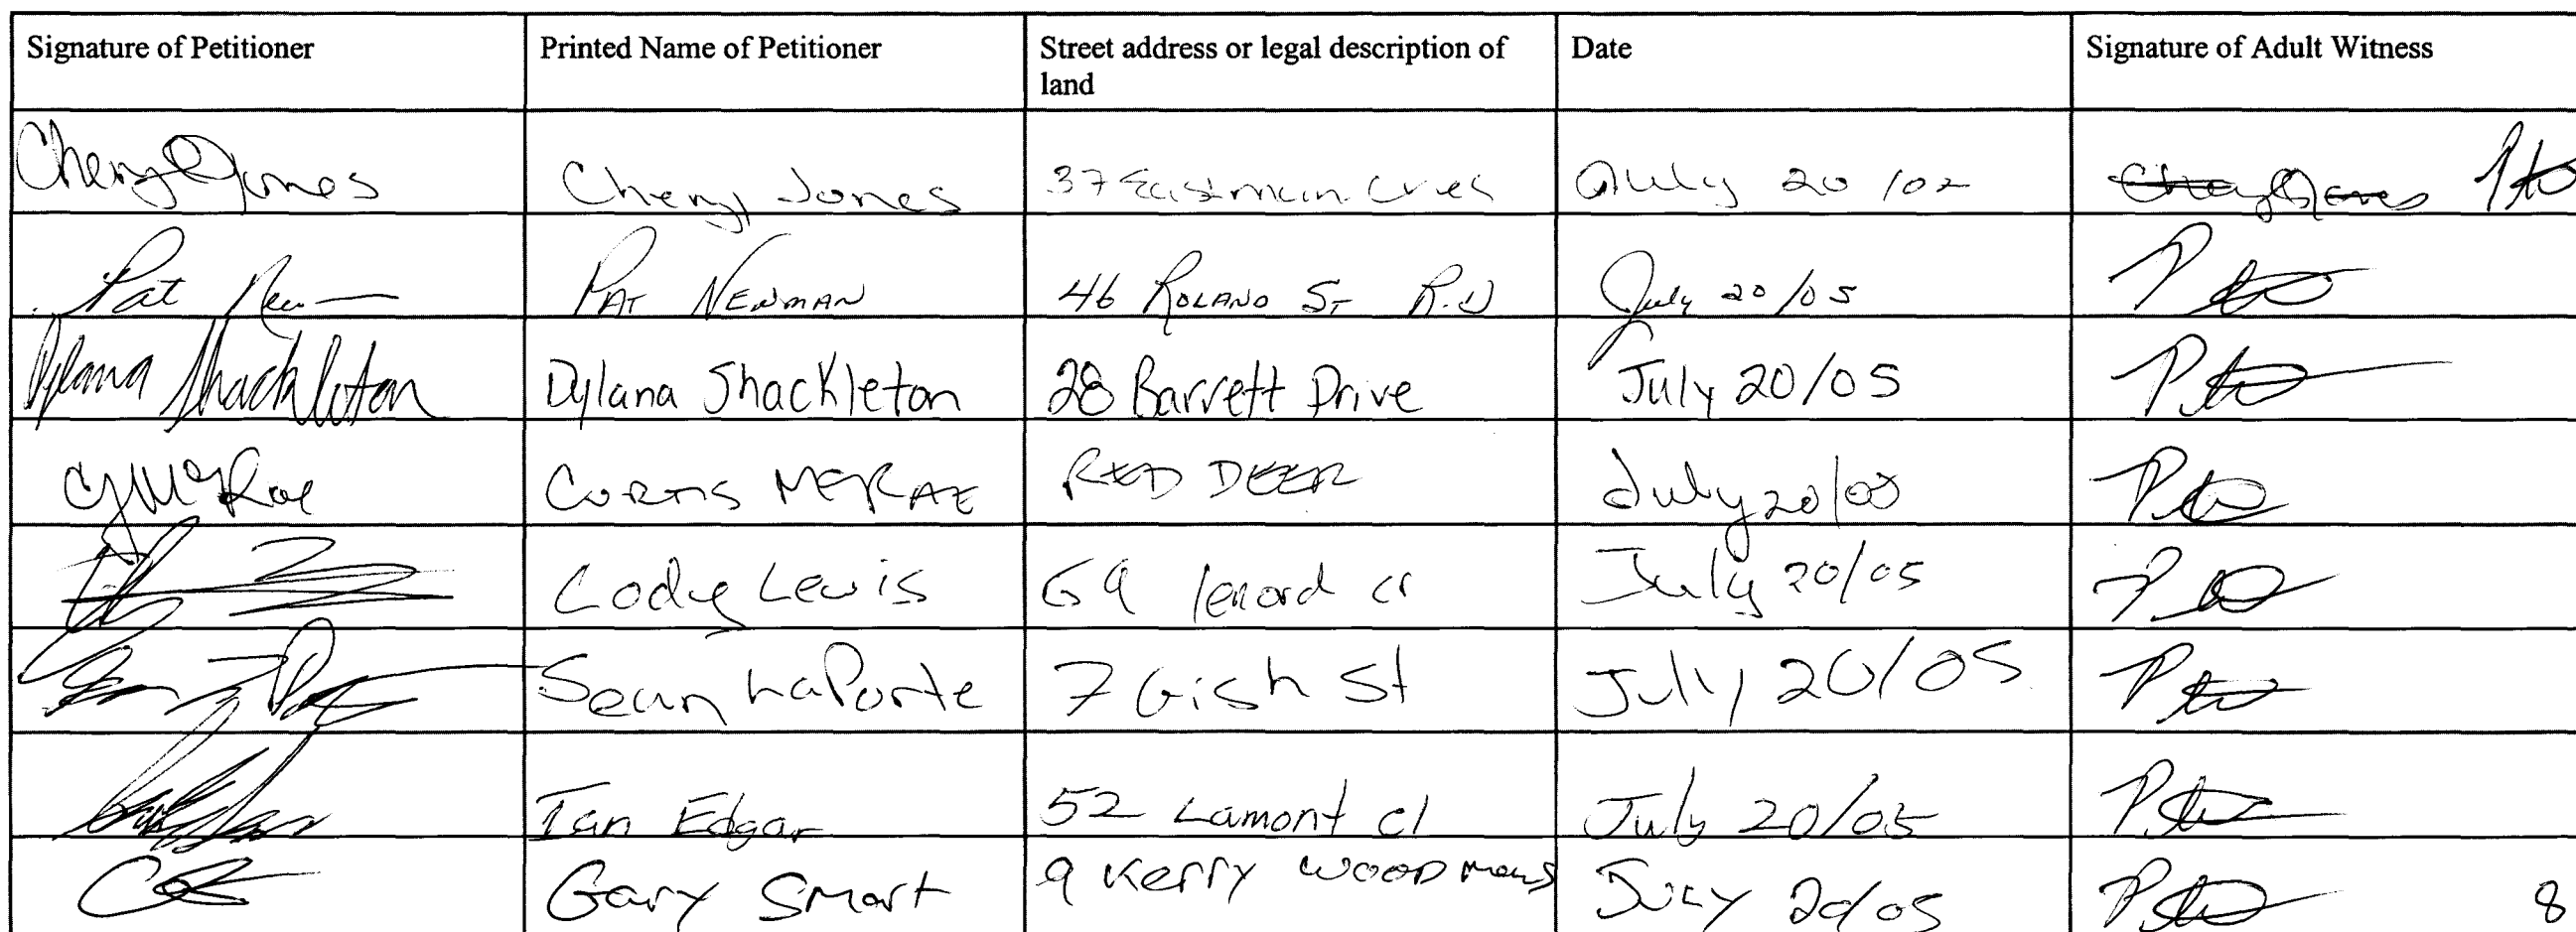 Signature of Petitioner Printed Name of Petitioner Street address or legal description of land Date Signature of Adult Witness
Cheryl Jones Cheryl Jones 37 Eastman Cres July 20 /02 Cheryl Jones
Pat New PAT NEWMAN 46 ROLAND ST R.D July 20/05
Dylana Shackleton Dylana Shackleton 28 Barrett Drive July 20/05
CJ McRae CURTIS McRAE RED DEER July 20/05
Cody Lewis 69 lenord cr July 20/05
Sean LaPorte 7 Gish St July 20/05
Ian Edgar 52 Lamont cl July 20/05
Gary Smart 9 Kerry WOOD July 20/05 8